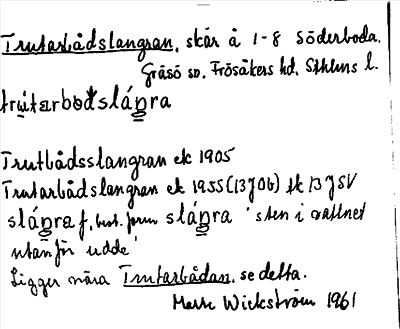 Trutarbådslangran, skär å 1-8 Söderboda.
Gräsö sn. Frösåkers hd. Sthlms l.
trutarbodslápra
Trutbådsslangran ek 1905
Trutarbådslangran ek 1955 (13J0b) tk 13J SV
slápra f, best. form slápra 'sten i vattnet
utanför udde'
Ligger nära Trutarbådan, se detta.
Wickström 1961